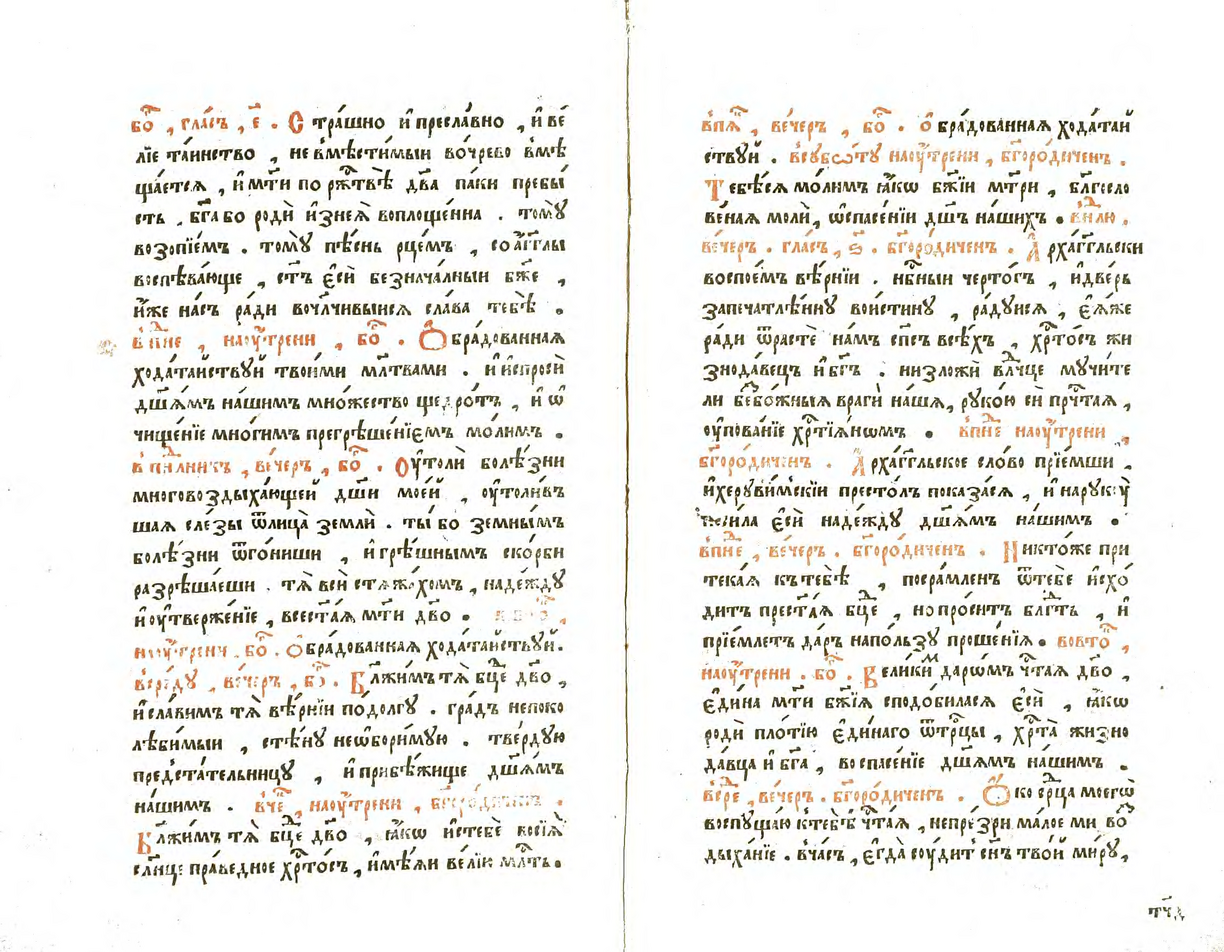 бо҃ , гла́съ , є҃ . Стра́шно и҆ пресла́вно , и҆ ве́
лїе та́инство , не вмѣсти́мыи во чре́во вмѣ
ща́ется , и҆ мт҃и по ржт҃вѣ дв҃а па́ки пребы́
сть . бг҃а бо роди̇̀ и҆знея̀ воплоще́нна . тому̀
возопїе́мъ . тому̀ пѣ́снь рце́мъ , со а҆́гг҃лы
воспѣва́юще , ст҃ъ є҆сѝ безнача́лныи бж҃е ,
и҆́же на́съ ра́ди вочл҃чивыися сла́ва тебѣ̀ .
в пн҃е , нао у҆́трени , бо҃ . Ѻ҆бра́дованная
хода́таиствуй твои́ми мл҃твами . и҆ и҆спросѝ
дш҃а́мъ на́шимъ мно́жество щедро́тъ , и҆ ѡ҆
чище́нїе мно́гимъ прегрѣше́нїємъ мо́лимъ .
в пн҃лникъ , ве́черъ , бо҃ . Оу҆толѝ болѣ́зни
многовоздыха́ющей дш҃и мое́й , оу҆толи́въ
шая сле́зы ѿлица̀ землѝ . ты́ бо земны́мъ
болѣ́зни ѿго́ниши , и҆ грѣ́шнымъ ско́рби
разрѣша́еши . тя̀ всѝ стяжа́хомъ , наде́жду
и҆ оу҆твержде́нїе , всест҃а́я мт҃и дв҃о .
нао у҆́трени . бо҃ . Ѻ҆бра́дованная хода́таиствуй .
в сре́ду , ве́черъ , бо҃ . Бл҃жи́мъ тя̀ бц҃е дв҃о ,
и҆ сла́вимъ тя̀ вѣ́рнїи по до́лгу . гра́дъ непоко
лѣби́мыи , стѣ́ну неѡбори́мую . тве́рдую
предста́тельницу , и҆ прибѣ́жище дш҃а́мъ
на́шимъ . в че҃ , нао у҆́трени , бг҃оро́диченъ .
Бл҃жи́мъ тя̀ бц҃е дв҃о , ꙗ҆́кѡ и҆стебѐ восїя̀
сл҃нце пра́ведное хрⷭ҇то́съ , и҆мѣ́яи ве́лїю мл҃ть .
в пя҃ , ве́черъ , бо҃ . ѻ҆бра́дованная хода́таи
ствуй . в субѡ́ту нао у҆́трени , бг҃оро́диченъ .
Тебѣ́ся мо́лимъ ꙗ҆́кѡ бж҃їи мт҃ри , бл҃госло
ве́ная молѝ , ѡ҆спасе́нїи дш҃ъ на́шихъ . в нл҃ю .
ве́черъ . гла́съ , ѕ҃ . бг҃оро́диченъ . А҆рха́гг҃льски
воспое́мъ вѣ́рнїи . нб҃ныи черто́гъ , и҆ две́рь
запечатлѣ́нну вои́стину , ра́дуися , є҆я́же
ра́ди ѿрастѐ на́мъ сп҃съ всѣ́хъ , хрⷭ҇то́съ жи
знода́вецъ и҆ бг҃ъ . низложѝ вл҃чце мучи́те
ли безбо́жныя врагѝ на́шя , руко́ю си̇̀ прчⷭ҇тая ,
оу҆пова́нїе хрⷭ҇тїа́нѡмъ . в пн҃е нао у҆́трени ,
бг҃оро́диченъ . А҆рха́гг҃льское сло́во прїе́мши .
и҆ херуви́мскїи престо́лъ показа́ся , и҆ на рук꙾у̀
є҆сѝ наде́жду дш҃а́мъ на́шимъ .
в пн҃е , ве́черъ . бг҃оро́диченъ . Никто́же при
тека́я къ тебѣ̀ , посра́мленъ ѿтебѐ и҆схо́
дитъ прест҃а́я бц҃е , но про́ситъ бл҃гть , и҆
прїе́млетъ да́ръ напо́льзу проше́нїя . во вто҃ ,
нао у҆́трени . бо҃ . Вели́кимъ даро́мъ чⷭ҇тая дв҃о ,
є҆ди́на мт҃и бж҃їя сподо́билася є҆сѝ , ꙗ҆́кѡ
родѝ пло́тїю є҆ди́наго ѿ трⷪ҇цы , хрⷭ҇та̀ жизно
да́вца и҆ бг҃а , во спасе́нїе дш҃а́мъ на́шимъ .
в сре҃ , ве́черъ . бг҃оро́диченъ . Ѻ҆́ко се́рдца моегѡ̀
воспуща́ю к тебѣ̀ чⷭ҇тая , непре́зри ма́лое ми во́з
дыха́нїе . в ча́съ , є҆гда̀ су́дитъ сн҃ъ тво́й ми́ру ,